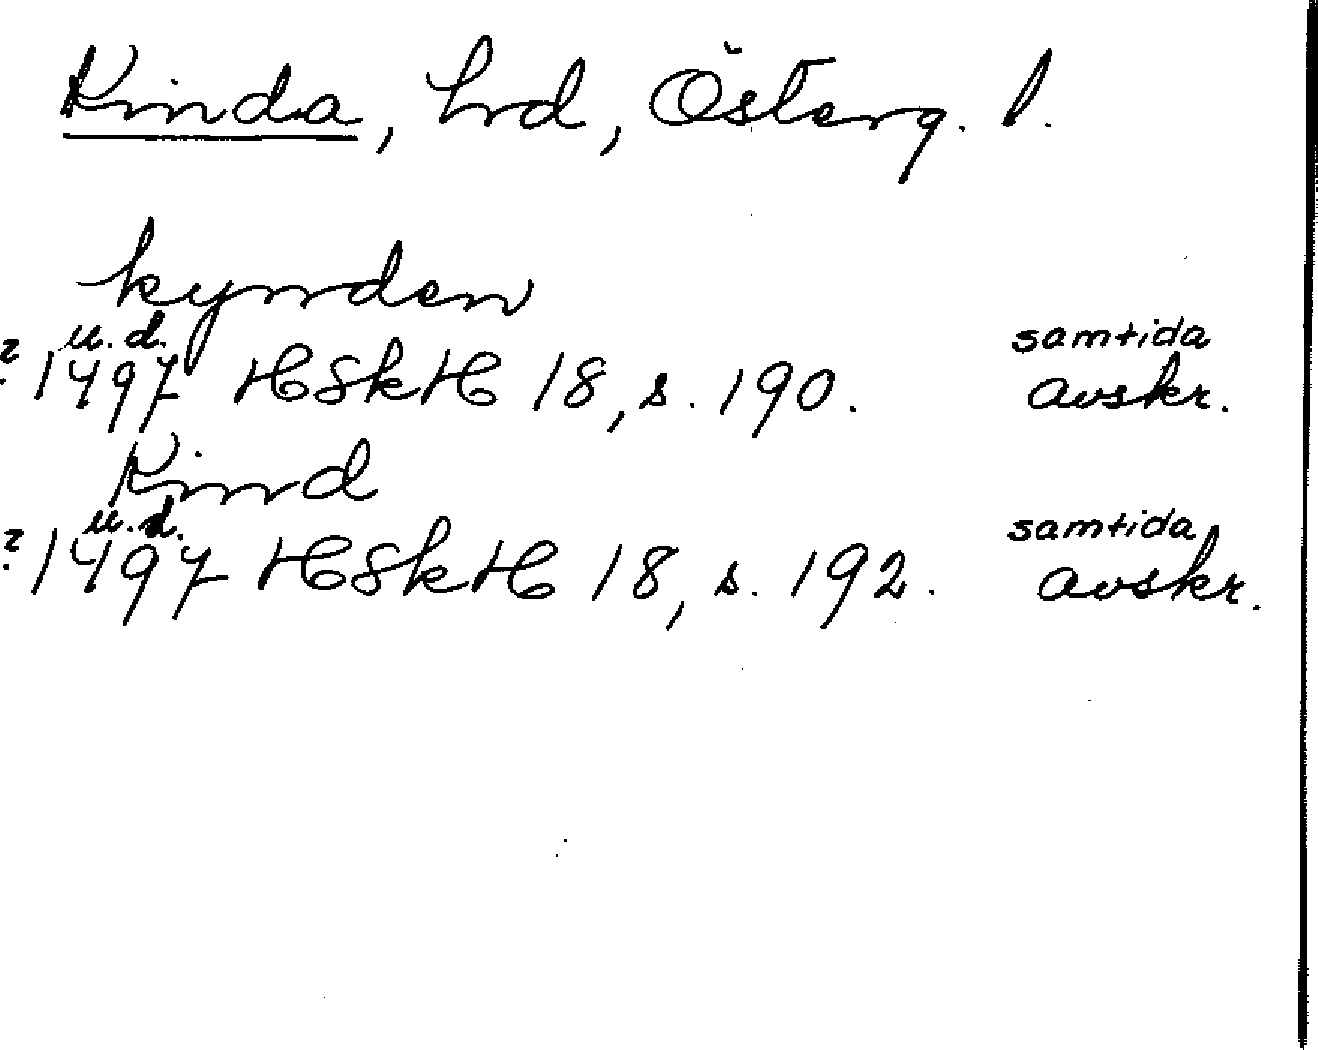 Kinda, hrd, Österg. l.
kynden
u.d. samtida
? 1497 HSkH 18, s. 190. avskr.
Kind
u.d. samtida
? 1497 HSkH 18, s. 192. avskr.